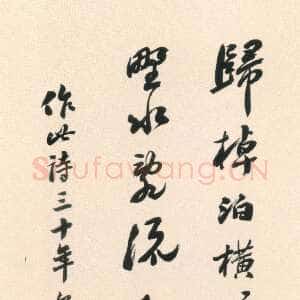 歸棹泊橫
野水亂流
作此詩三十年
Shufawang.CN